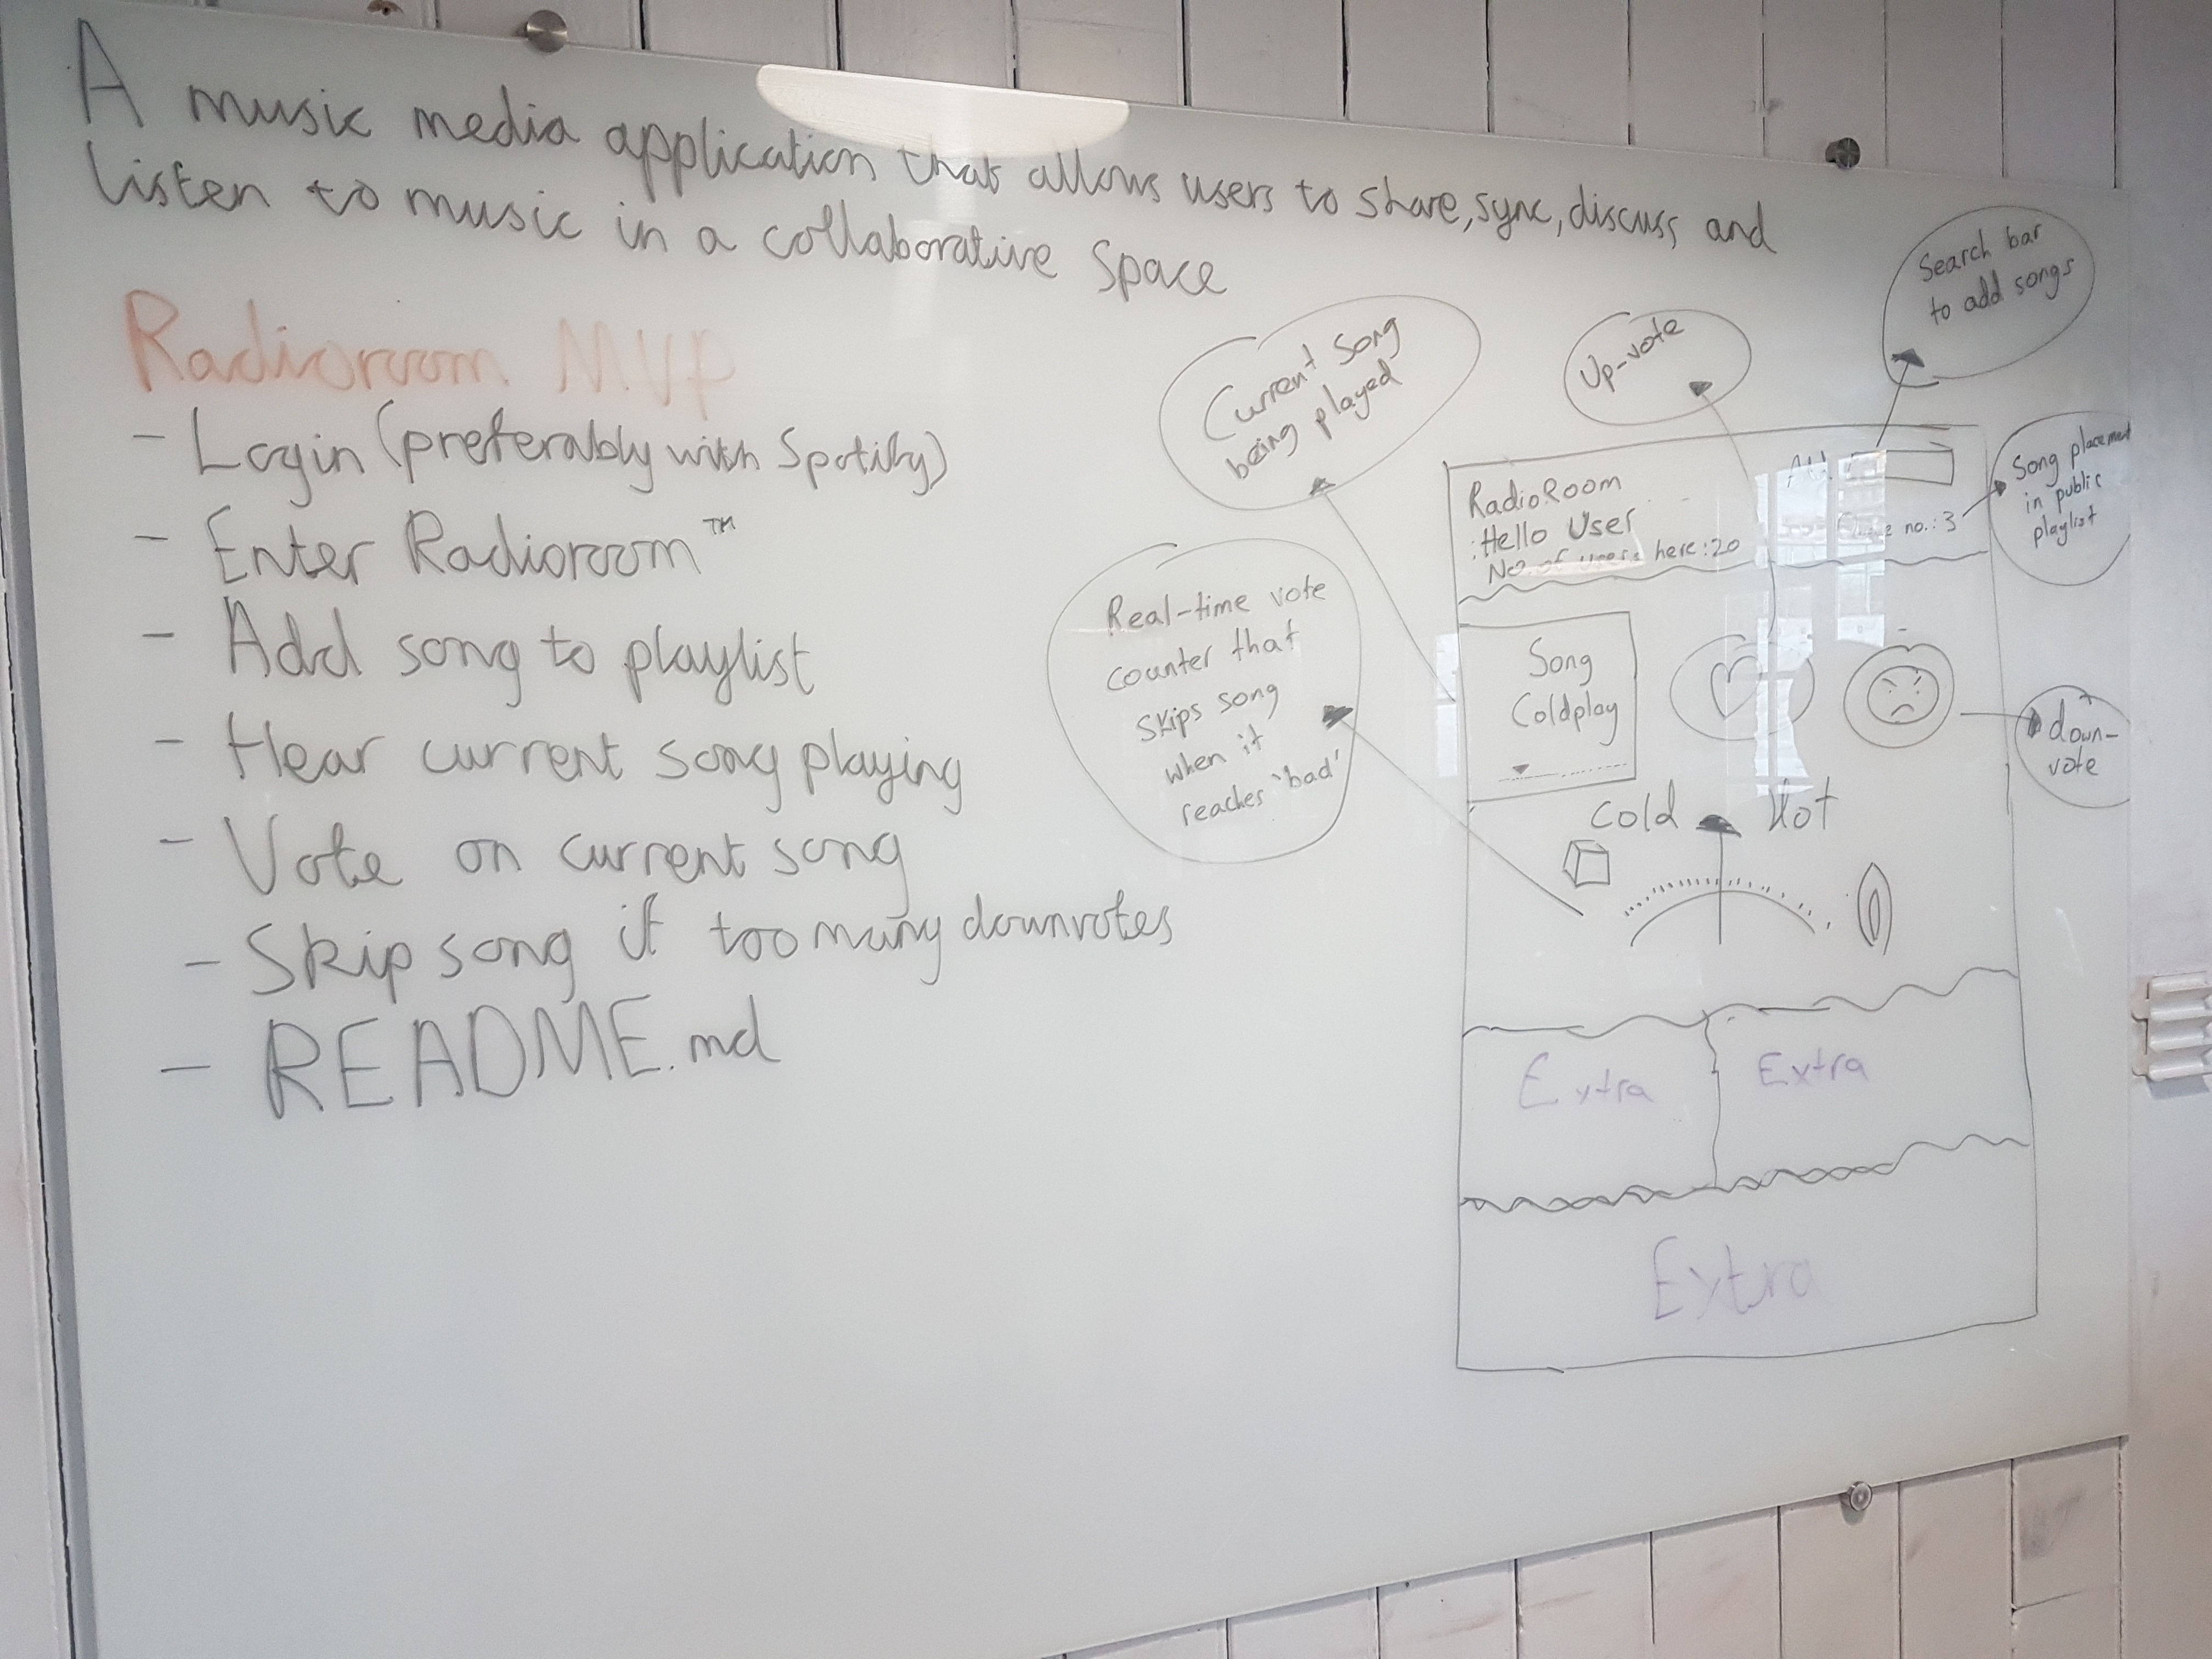 A music media application that allows users to share, sync, discuss, and
listen to music in a collaborative space
Radioroom MVP
- Login (preferably with Spotify)
- Enter Radioroom™
- Add song to playlist
- Hear current song playing
- Vote on current song
- Skip song if too many downvotes
- README.md
Current Song
being played
Up-vote
Search bar
to add songs
Song placement
in public
playlist
Real-time vote
counter that
skips song
when it
reaches 'bad'
RadioRoom
:Hello User
No. of users here:20
no.: 3
Song
Coldplay
down-
vote
Cold
Hot
Extra
Extra
Extra